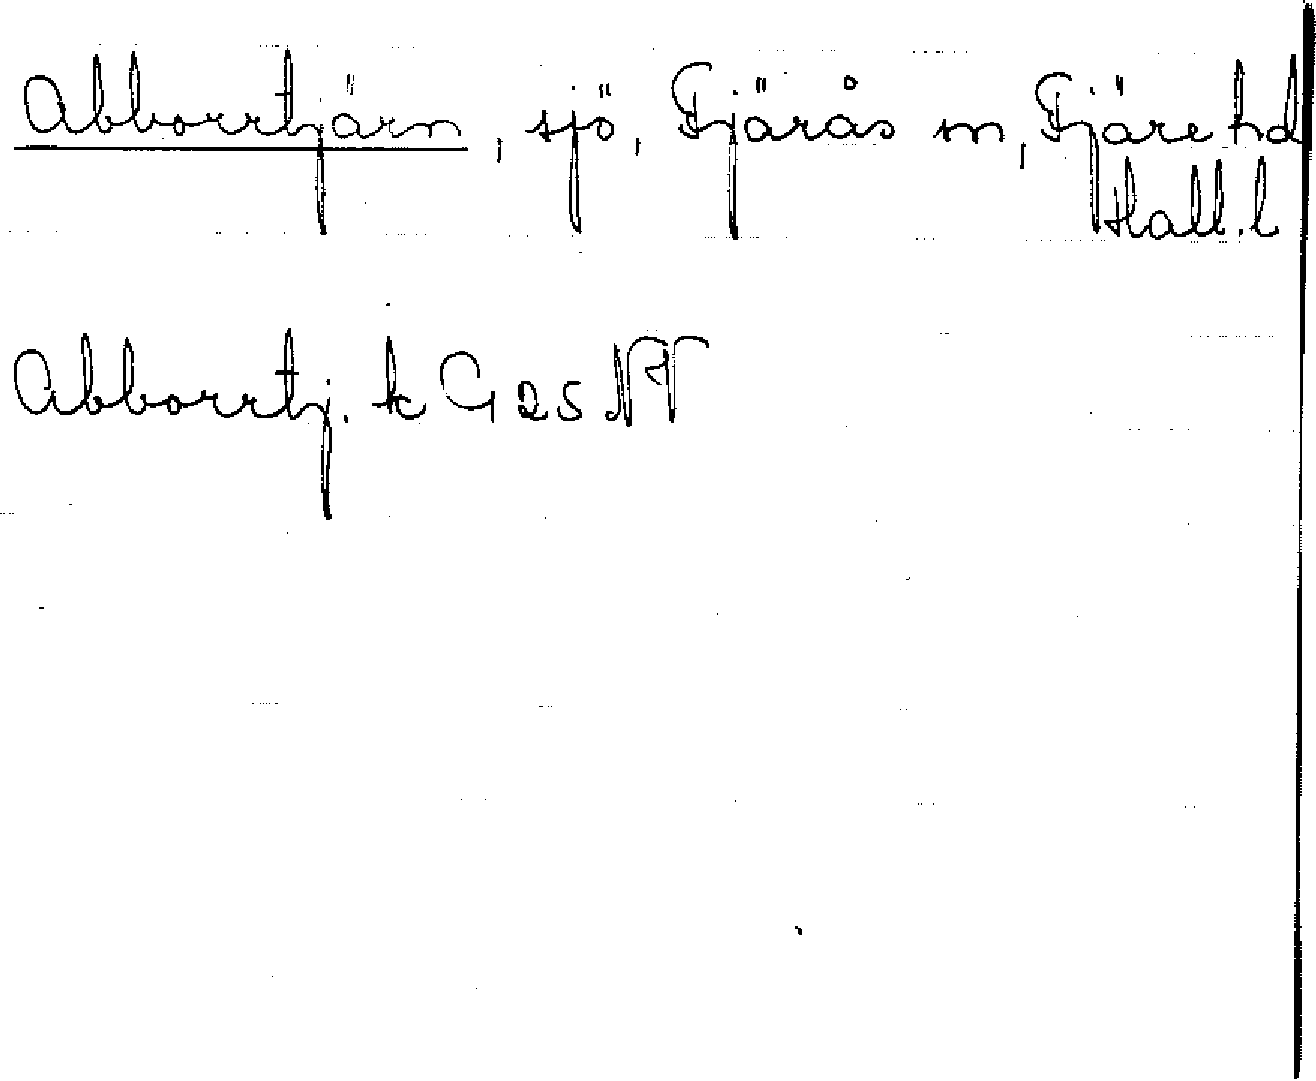 Abborrtjärn, sjö, Fjärås sn, Fjäre hd
Hall. l
Abborrtj. k G 25 NV